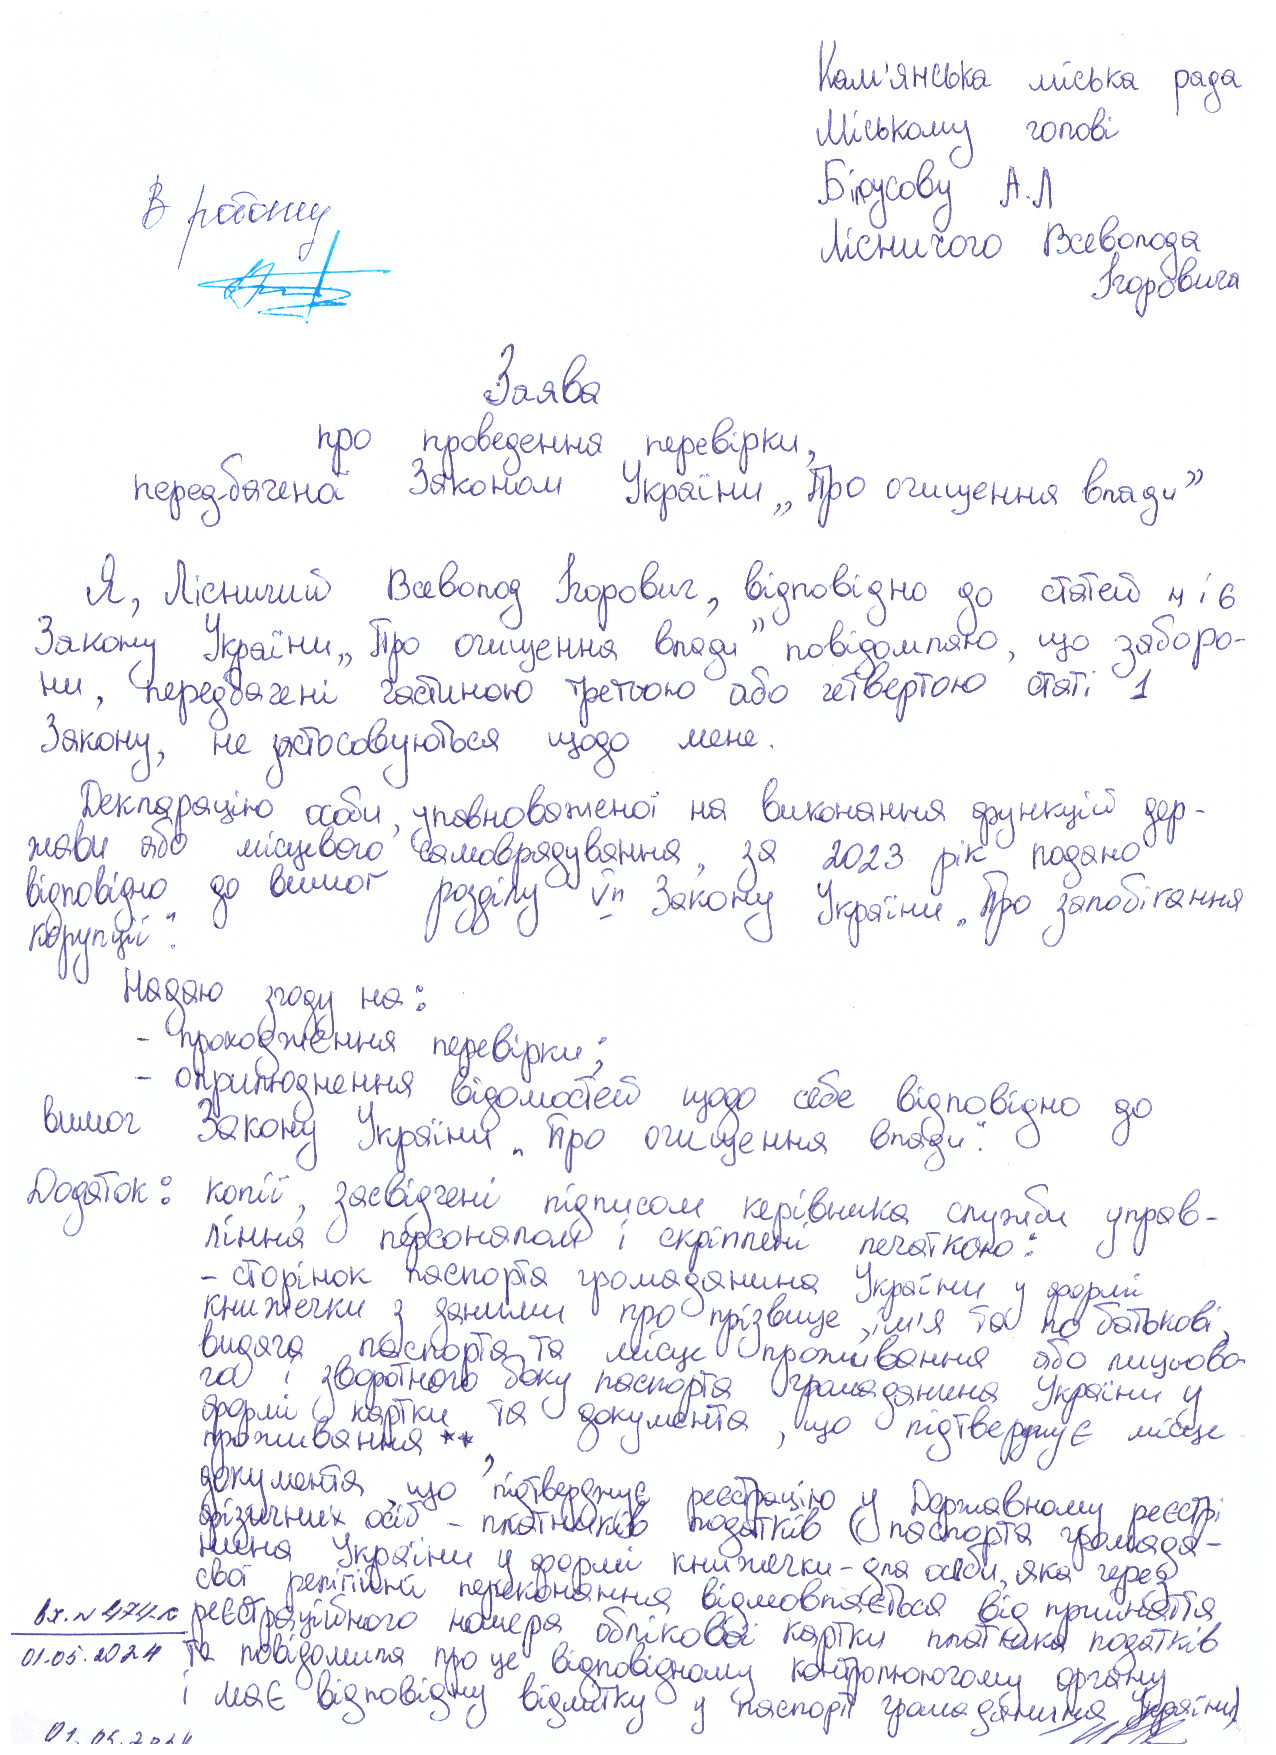 Кам'янська міська рада
Міському голові
Білоусову А.Л
Лісничого Всеволода
Ігоровича
В роботу
Заява
про проведення перевірки,
передбаченої Законом України „Про очищення влади”
Я, Лісничий Всеволод Ігорович, відповідно до статей 4 і 6
Закону України „Про очищення влади” повідомляю, що заборо-
ни, передбачені частиною третьою або четвертою статі 1
Закону, не застосовуються щодо мене.
Декларацію особи, уповноваженої на виконання функцій дер-
жави або місцевого самоврядування, за 2023 рік подано
відповідно до вимог розділу VII Закону України „Про запобігання
корупції".
Надаю згоду на:
- проходження перевірки;
- оприлюднення відомостей щодо себе відповідно до
вимог Закону України „Про очищення влади".
Додаток: копії, засвідчені підписом керівника служби управ-
ління персоналом і скріплені печаткою:
- сторінок паспорта громадянина України у формі
книжечки з даними про прізвище, ім'я та по батькові,
видача паспорта та місце проживання або лицьово-
го і зворотного боку паспорта громадянина України у
формі картки та документа, що підтверджує місце
проживання **,
документа що підтверджує реєстрацію у Державному реєстрі
фізичних осіб - платників податків (паспорта громадя-
нина України у формі книжечки - для особи, яка через
свої релігійні переконання відмовляється від прийняття
реєстраційного номера облікової картки платника податків
та повідомила про це відповідному контролюючому органу
і має відповідну відмітку у паспорті громадянина України)
вх. № 474-к
01.05.2024
01.05.2024